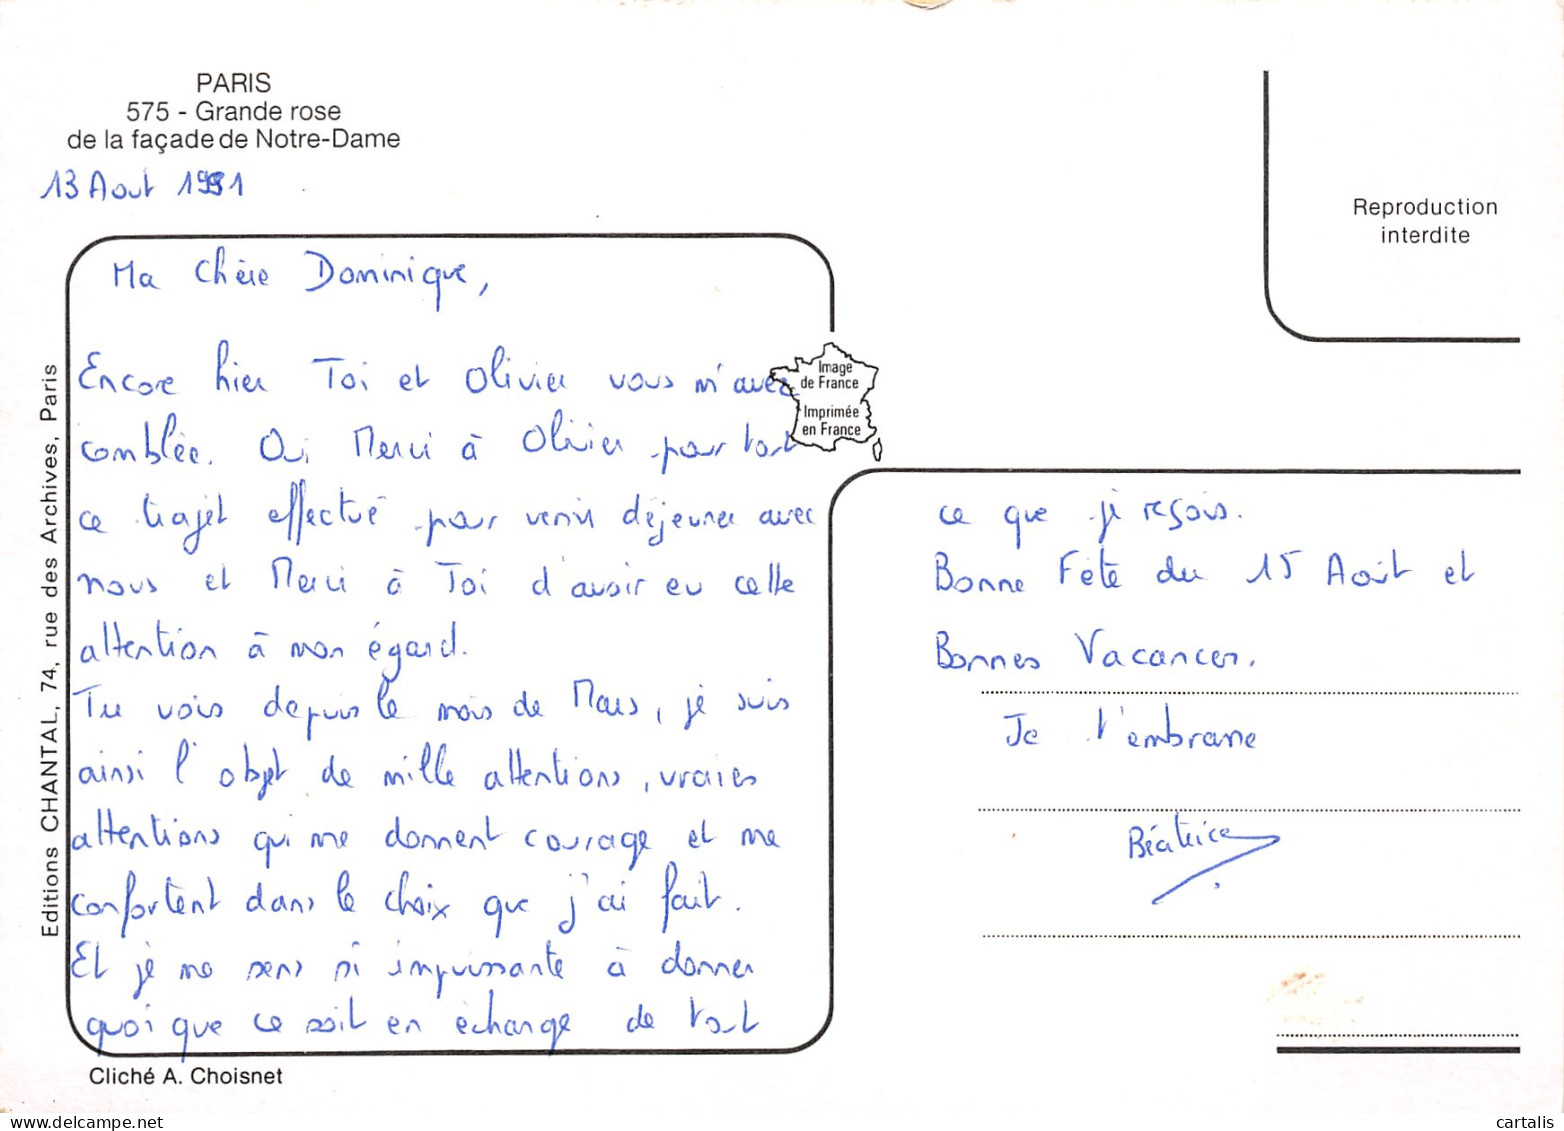 PARIS
575 - Grande rose
de la façade de Notre-Dame
13 Aout 1991
Reproduction
interdite
Ma Chère Dominique,
Encore hier Toi et Olivier vous m'avez
comblée. Oui Merci à Olivier pour tout
ce trajet effectué pour venir déjeuner avec
nous et Merci à Toi d'avoir eu cette
attention à mon égard.
Tu vois depuis le mois de Mars, je suis
ainsi l'objet de mille attentions, vraies
attentions qui me donnent courage et me
confortent dans le choix que j'ai fait.
Et je me sens si impuissante à donner
quoi que ce soit en échange de tout
Image
de France
Imprimée
en France
ce que je reçois.
Bonne Fête du 15 Août et
Bonnes Vacances.
Je t'embrasse
Béatrice
Editions CHANTAL, 74, rue des Archives, Paris
Cliché A. Choisnet
www.delcampe.net
cartalis